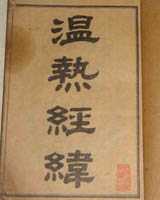 温熱經緯